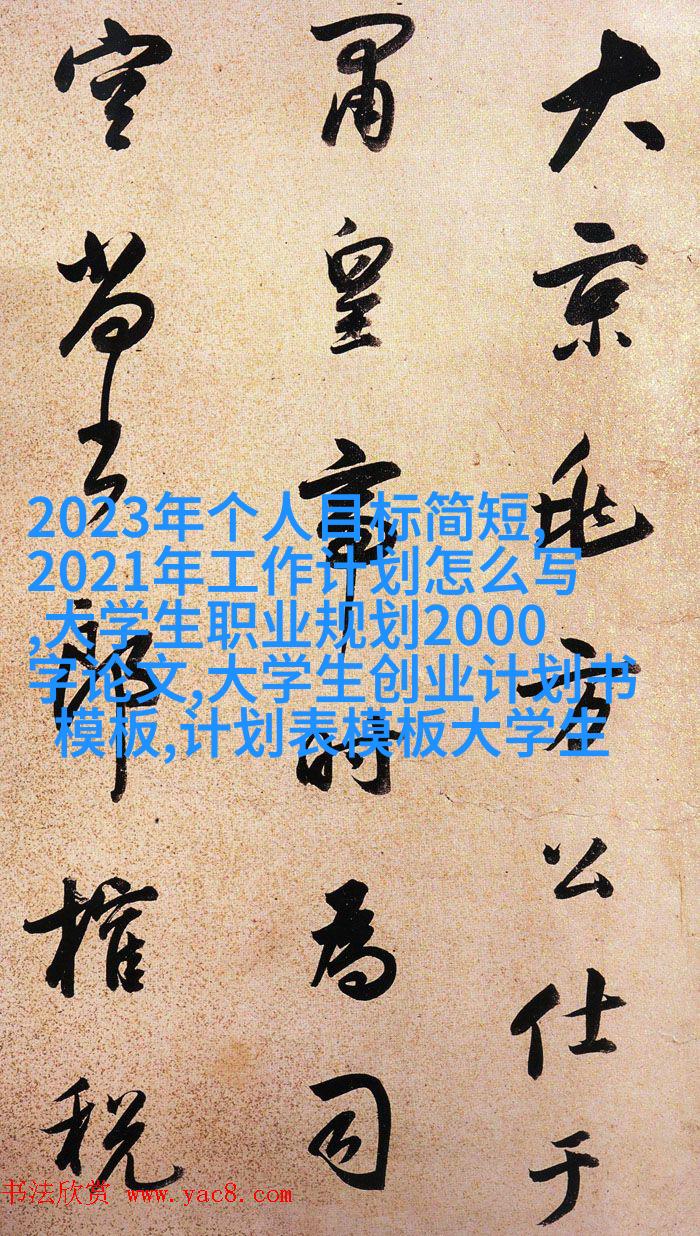 大京兆方公仕于
肅皇帝時為司
空尚書郎榷稅
2023年个人目标简短,
2021年工作计划怎么写
,大学生职业规划2000
字论文,大学生创业计划书
模板,计划表模板大学生
书法欣赏 www.yac8.com